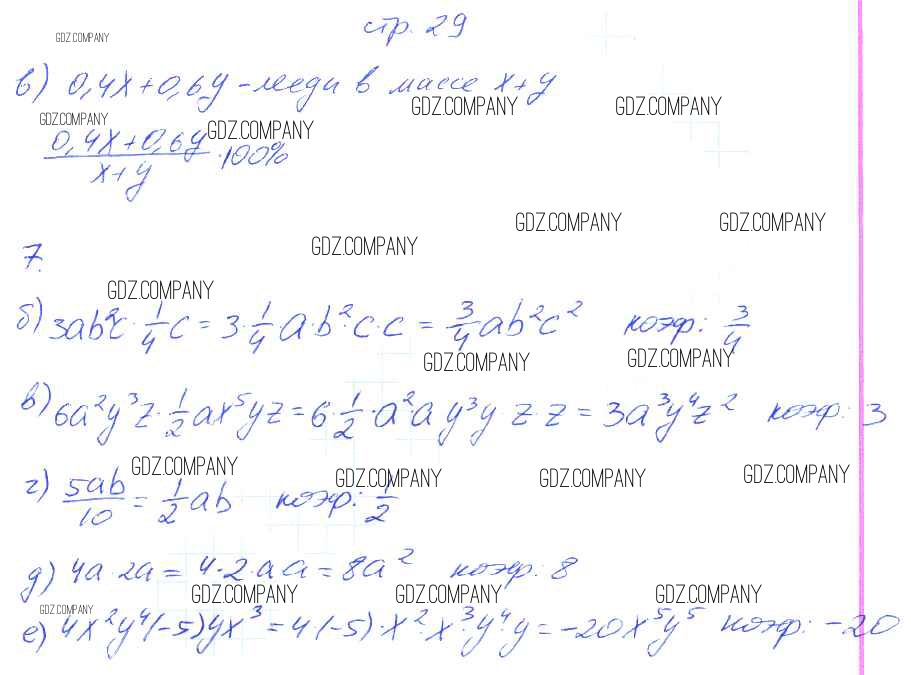 стр. 29
GDZ.COMPANY
в) 0,4x+0,6y - меди в массе x+y
GDZ.COMPANY GDZ.COMPANY
GDZ.COMPANY GDZ.COMPANY
(0,4x+0,6y)/(x+y) · 100%
GDZ.COMPANY GDZ.COMPANY
7.
GDZ.COMPANY
GDZ.COMPANY
б) 3ab²c · 1/4 c = 3 · 1/4 a · b² · c · c = 3/4 ab²c² коэф: 3/4
GDZ.COMPANY GDZ.COMPANY
в) 6a²y³z · 1/2 ax⁵yz = 6 · 1/2 · a²a y³y z · z = 3a³y⁴z² коэф: 3
GDZ.COMPANY GDZ.COMPANY GDZ.COMPANY GDZ.COMPANY
г) 5ab/10 = 1/2 ab коэф: 1/2
д) 4a · 2a = 4 · 2 · a a = 8a² коэф: 8
GDZ.COMPANY GDZ.COMPANY GDZ.COMPANY
GDZ.COMPANY
е) 4x²y⁴(-5)yx³ = 4(-5) · x² · x³ · y⁴ · y = -20x⁵y⁵ коэф: -20